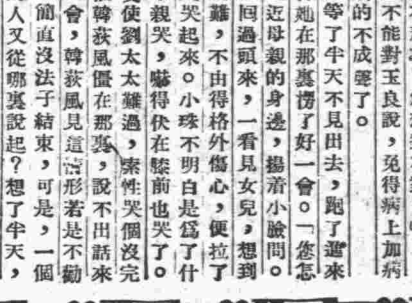 不能對玉良說，免得病上加病
的不成麼了。
等了半天不見出去，跑了進來
她在那裏愣了好一會。「您怎
近母親的身邊，揚着小臉問。
囘過頭來，一看見女兒，想到
難，不由得格外傷心，便拉了
哭起來。小珠不明白是爲了什
親哭，嚇得伏在膝前也哭了。
使劉太太難過，索性哭個沒完
韓荻風僵在那裏，說不出話來
會，韓荻風見這情形若是不勸
簡直沒法子結束，可是，一個
人又從哪裏說起？想了半天，